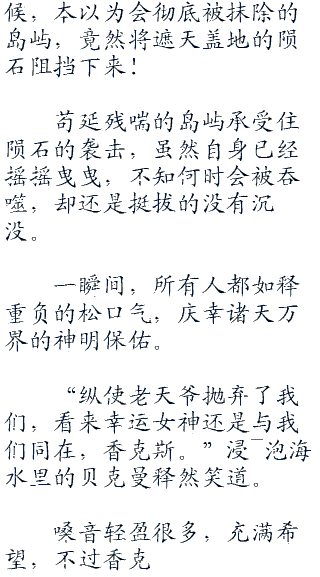 候，本以为会彻底被抹除的
岛屿，竟然将遮天盖地的陨
石阻挡下来！
苟延残喘的岛屿承受住
陨石的袭击，虽然自身已经
摇摇曳曳，不知何时会被吞
噬，却还是挺拔的没有沉
没。
一瞬间，所有人都如释
重负的松口气，庆幸诸天万
界的神明保佑。
“纵使老天爷抛弃了我
们，看来幸运女神还是与我
们同在，香克斯。”浸泡海
水里的贝克曼释然笑道。
嗓音轻盈很多，充满希
望，不过香克